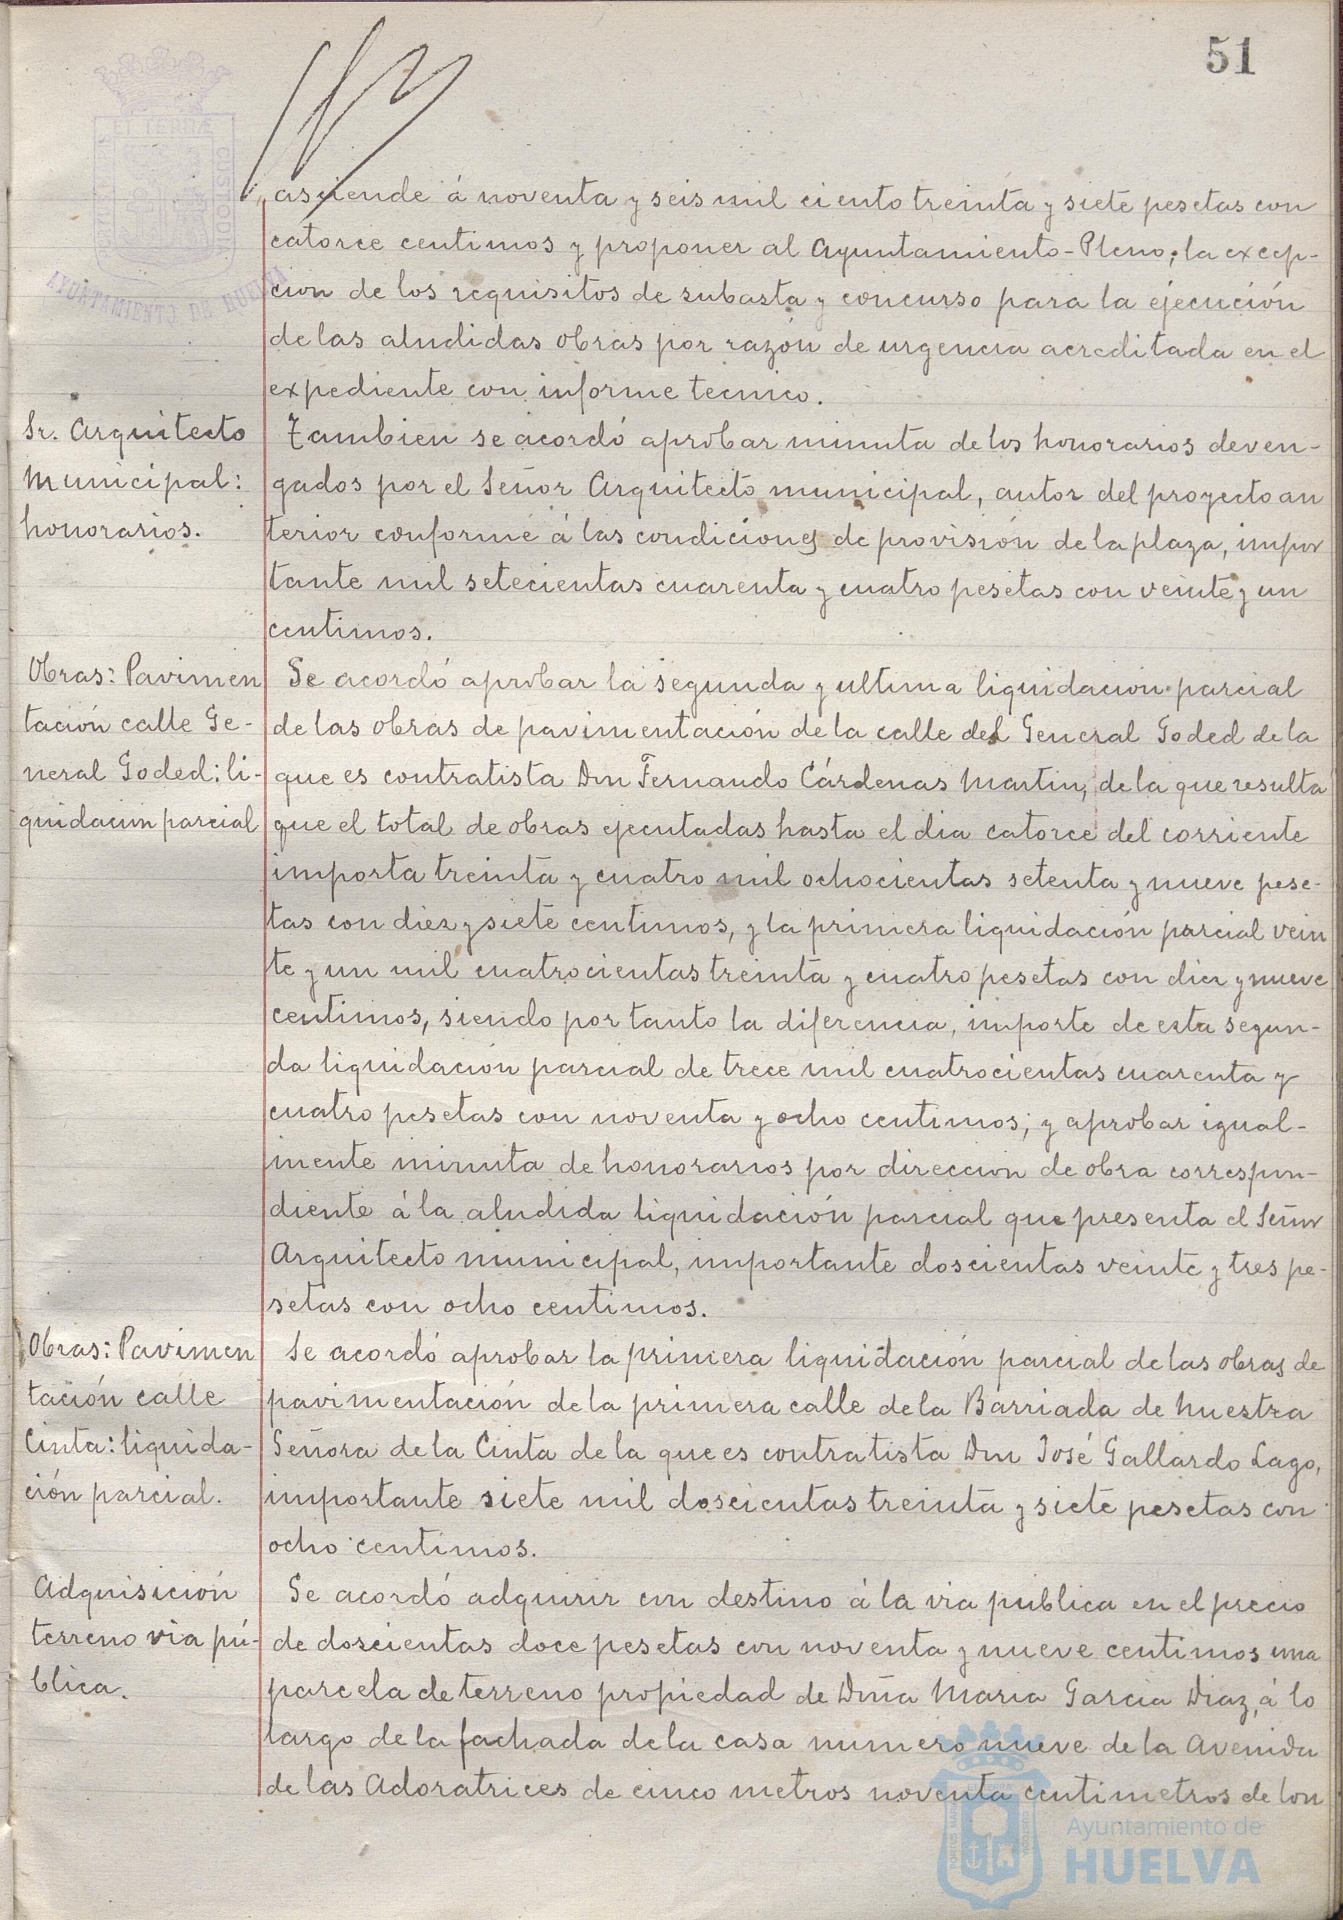 51
PORTUS MARIS
ET TERRÆ
CUSTODIA
AYUNTAMIENTO DE HUELVA
asciende á noventa y seis mil ciento treinta y siete pesetas con
catorce centimos y proponer al Ayuntamiento-Pleno, la excep-
cion de los requisitos de subasta y concurso para la ejecución
de las aludidas obras por razón de urgencia acreditada en el
expediente con informe tecnico.
Sr. Arquitecto
municipal:
honorarios.
Tambien se acordó aprobar minuta de los honorarios deven-
gados por el Señor Arquitecto municipal, autor del proyecto an
terior conforme á las condiciones de provisión de la plaza, impor
tante mil setecientas cuarenta y cuatro pesetas con veinte y un
centimos.
Obras: Pavimen
tación calle Ge-
neral Goded: li-
quidacion parcial
Se acordó aprobar la segunda y ultima liquidacion parcial
de las obras de pavimentación de la calle del General Goded de la
que es contratista Don Fernando Cárdenas Martin, de la que resulta
que el total de obras ejecutadas hasta el dia catorce del corriente
importa treinta y cuatro mil ochocientas setenta y nueve pese-
tas con diez y siete centimos, y la primera liquidación parcial vein
te y un mil cuatrocientas treinta y cuatro pesetas con diez y nueve
centimos, siendo por tanto la diferencia, importe de esta segun-
da liquidación parcial de trece mil cuatrocientas cuarenta y
cuatro pesetas con noventa y ocho centimos; y aprobar igual-
mente minuta de honorarios por direccion de obra correspon-
diente á la aludida liquidación parcial que presenta el Señor
Arquitecto municipal, importante doscientas veinte y tres pe-
setas con ocho centimos.
Obras: Pavimen
tación calle
Cinta: liquida-
ción parcial.
Se acordó aprobar la primera liquidación parcial de las obras de
pavimentación de la primera calle de la Barriada de Nuestra
Señora de la Cinta de la que es contratista Don José Gallardo Lago,
importante siete mil doscientas treinta y siete pesetas con
ocho centimos.
Adquisición
terreno via pú-
blica.
Se acordó adquirir con destino á la via publica en el precio
de doscientas doce pesetas con noventa y nueve centimos una
parcela de terreno propiedad de Dña Maria Garcia Diaz, á lo
largo de la fachada de la casa numero nueve de la Avenida
de las Adoratrices de cinco metros noventa centimetros de lon
Ayuntamiento de
HUELVA